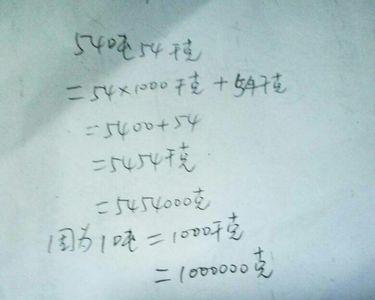 54吨54千克
=54×1000千克+54千克
=5400+54
=5454千克
=5454000克
因为1吨=1000千克
=1000000克